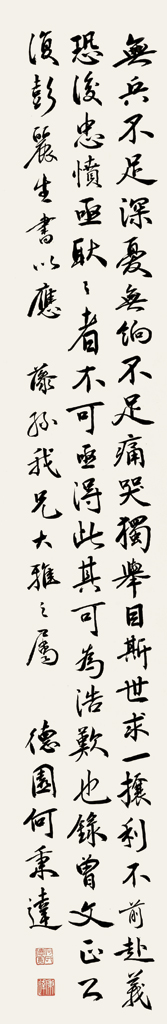 無兵不足深憂無餉不足痛哭獨舉目斯世求一攘利不前赴義
恐後忠憤亟耿〻者不可亟得此其可為浩歎也錄曾文正公
復彭麗生書以應 藜孫我兄大雅之屬 德園何秉達